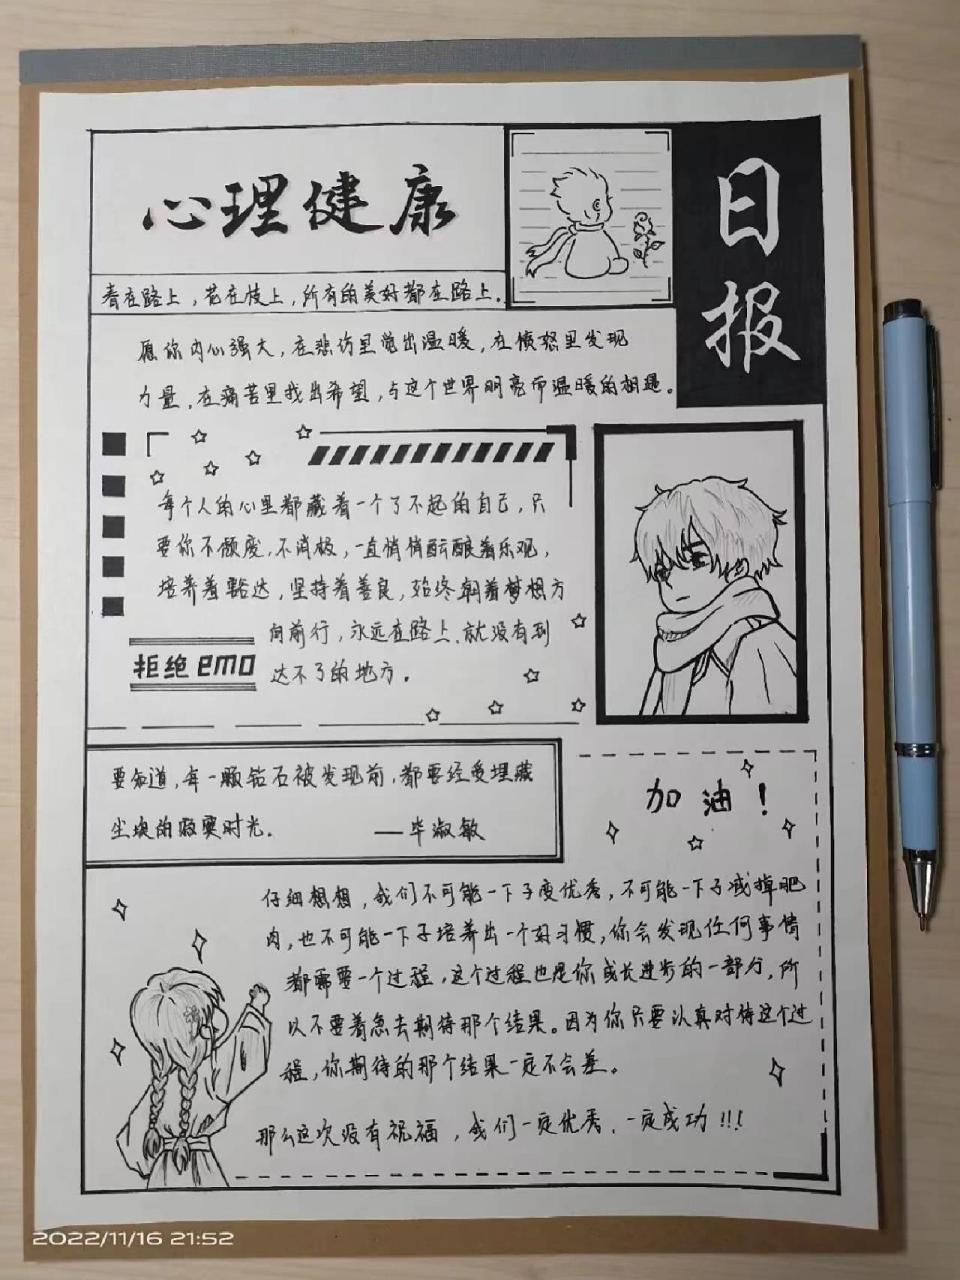 心理健康
日报
春在路上，花在枝上，所有的美好都在路上。
愿你内心强大，在悲伤里觉出温暖，在愤怒里发现
力量，在痛苦里找出希望，与这个世界明亮而温暖的相遇。
每个人的心里都藏着一个了不起的自己，只
要你不颓废，不消极，一直悄悄酝酿着乐观，
培养着豁达，坚持着善良，始终朝着梦想方
向前行，永远在路上，就没有到
达不了的地方。
拒绝emo
要知道，每一颗钻石被发现前，都要经受埋藏
尘埃的寂寞时光。 ——毕淑敏
加油！
仔细想想，我们不可能一下子变优秀，不可能一下子减掉肥
肉，也不可能一下子培养出一个好习惯，你会发现任何事情
都需要一个过程，这个过程也是你成长进步的一部分，所
以不要着急去期待那个结果。因为你只要认真对待这个过
程，你期待的那个结果一定不会差。
那么这次没有祝福，我们一定优秀，一定成功!!!
2022/11/16 21:52